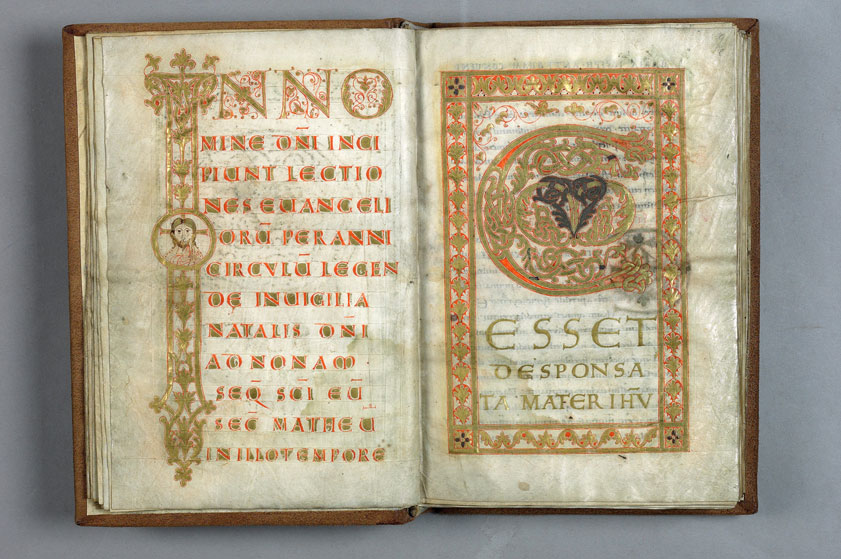 INNO
MINE DN̄I INCI
PIUNT LECTIO
NES EUANGELI
ORŪ PER ANNI
CIRCVLŪ LEGEN
DE IN UIGILIA
NATALIS DN̄I
AD NONAM ·
SEQ̄ SC̄I EŪ
SEC̄ MATHEU
IN ILLO TEMPORE
C
ESSET
DESPONSA
TA MATER IHV̄